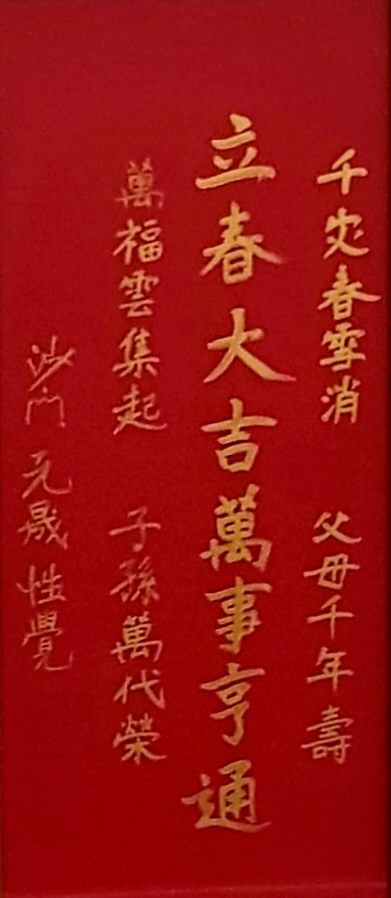 千災春雪消 父母千年壽
立春大吉萬事亨通
萬福雲集起 子孫萬代榮
沙門 元晟 性覺